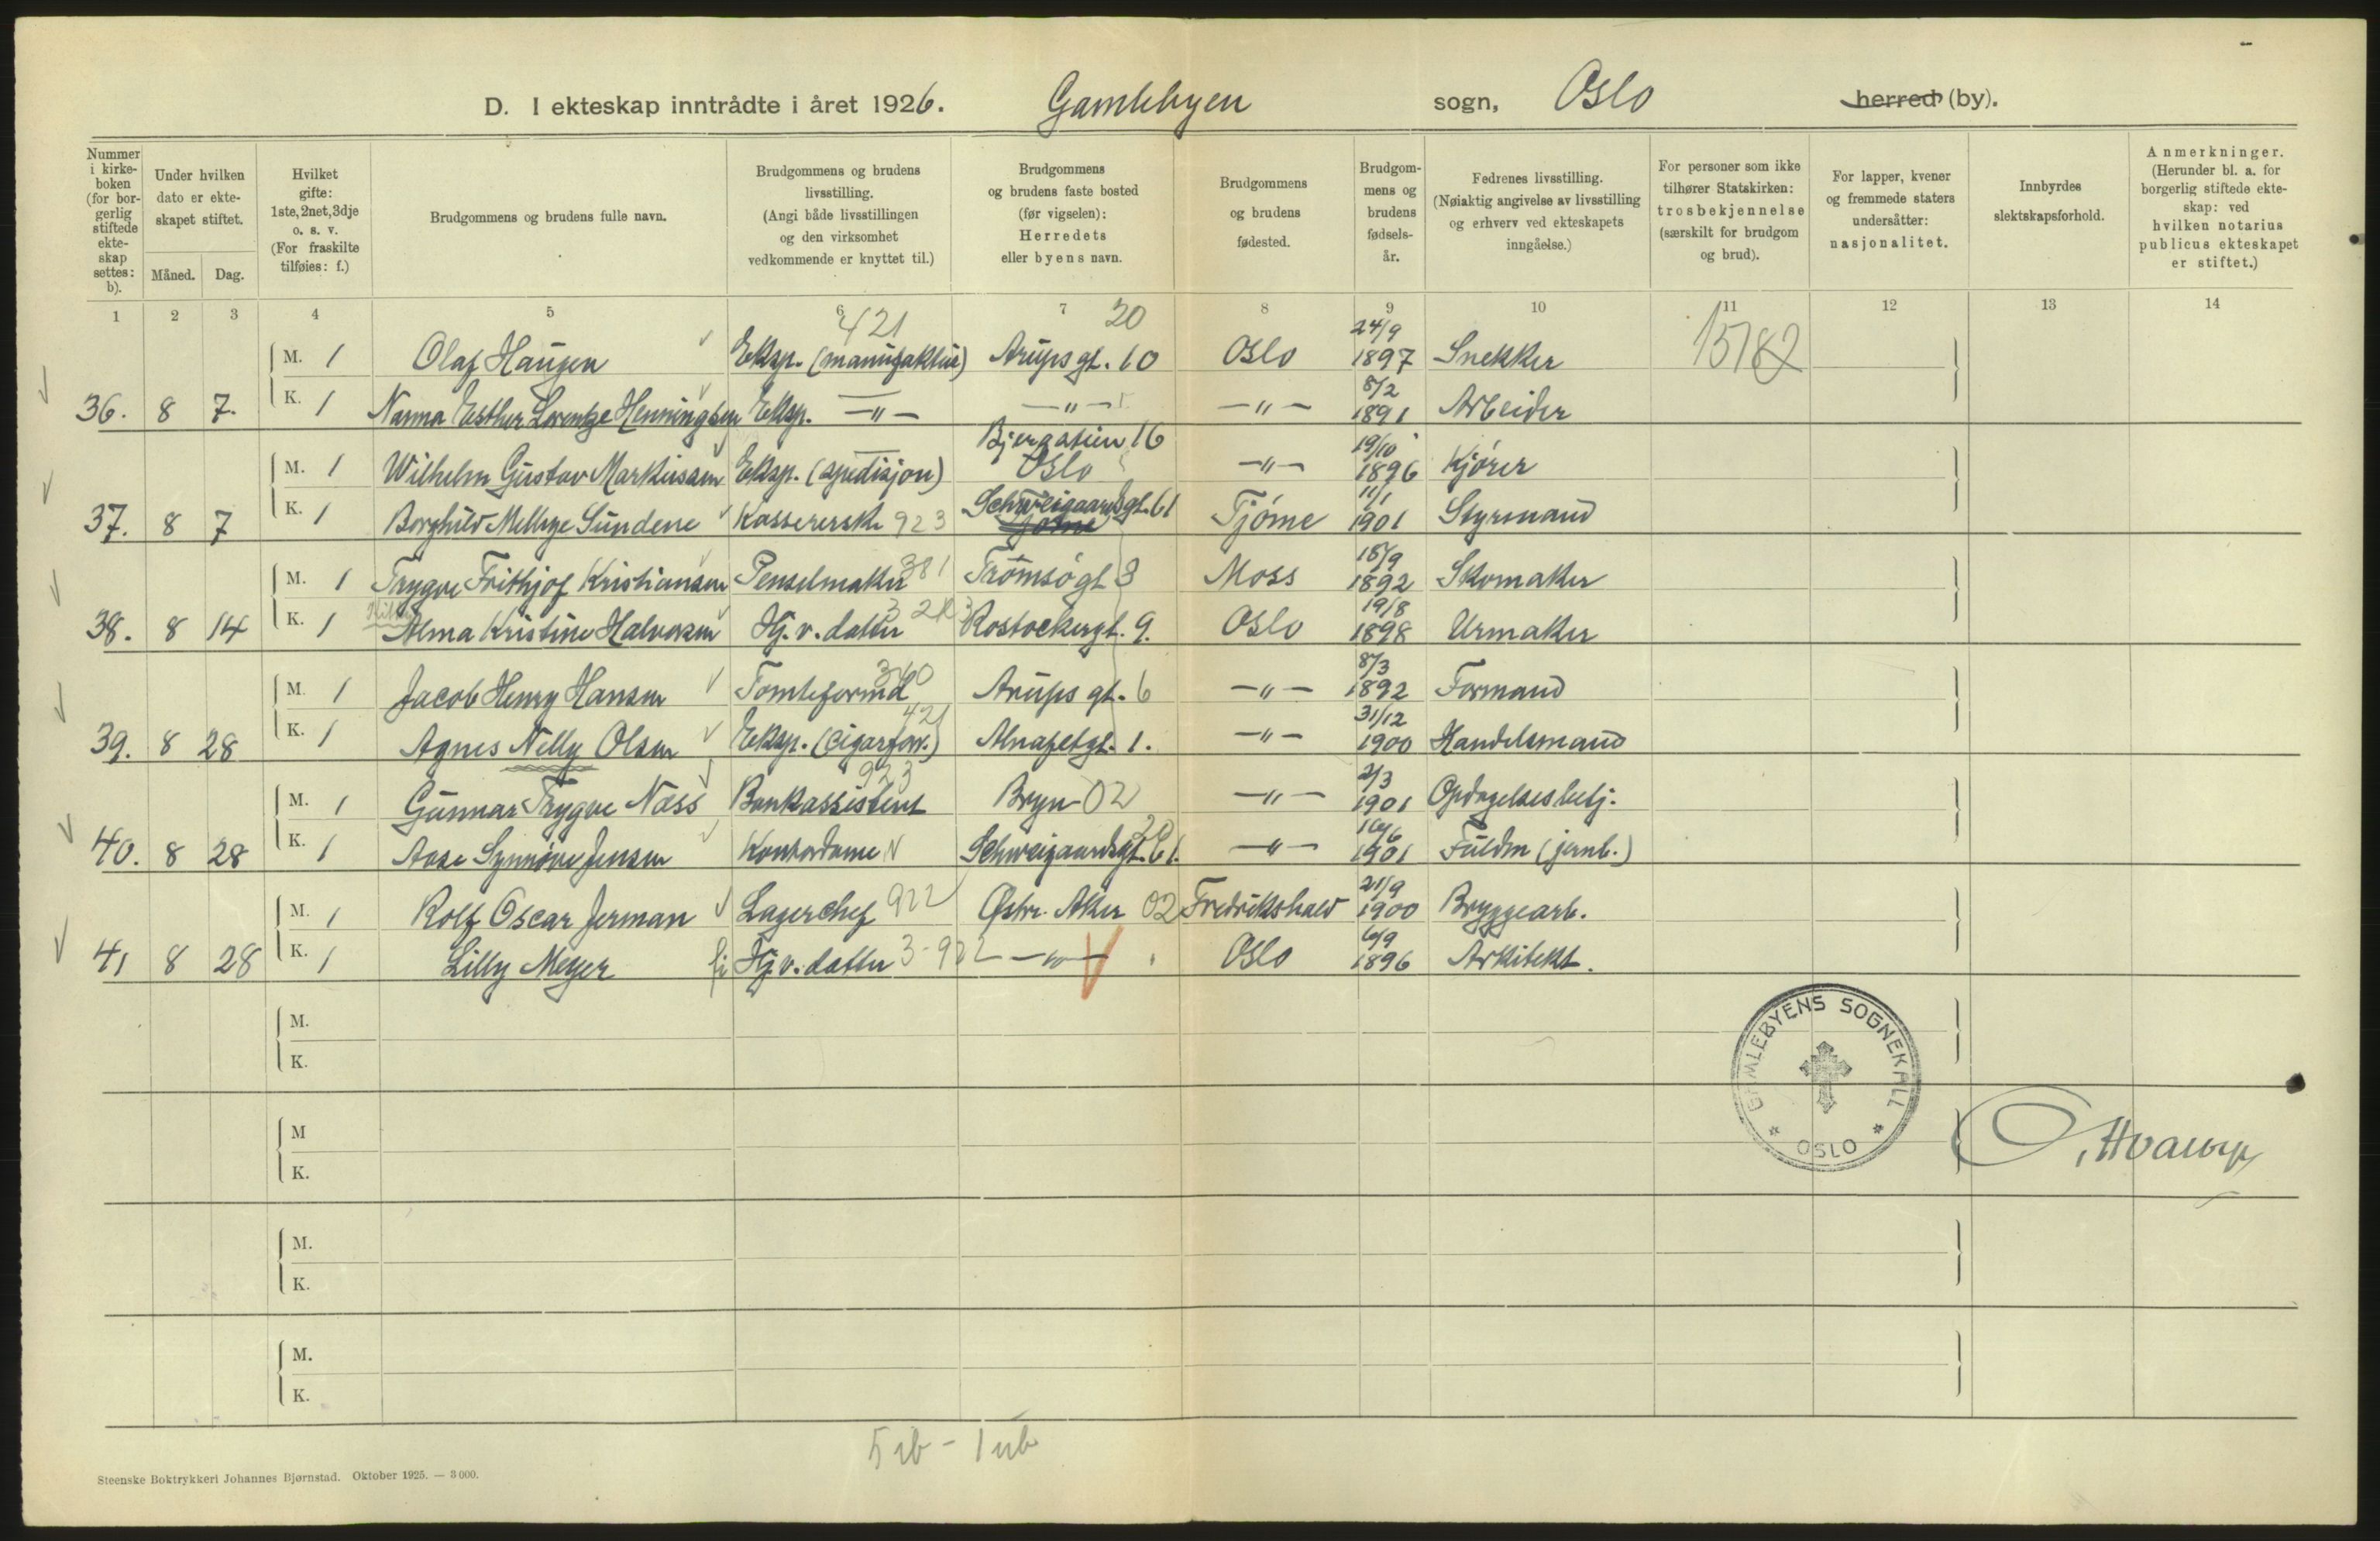 D. I ekteskap inntrådte i året 1926. Gamlebyen sogn, Oslo herred (by).
Nummer i kirke-boken (for bor-gerlig stiftede ekte-skap settes: b).
Under hvilken dato er ekte-skapet stiftet.
Måned. Dag.
Hvilket gifte: 1ste, 2net, 3dje o. s. v. (For fraskilte tilføies: f.)
Brudgommens og brudens fulle navn.
Brudgommens og brudens livsstilling. (Angi både livsstillingen og den virksomhet vedkommende er knyttet til.)
Brudgommens og brudens faste bosted (før vigselen): Herredets eller byens navn.
Brudgommens og brudens fødested.
Brudgom-mens og brudens fødsels-år.
Fedrenes livsstilling. (Nøiaktig angivelse av livsstilling og erhverv ved ekteskapets inngåelse.)
For personer som ikke tilhører Statskirken: trosbekjennelse (særskilt for brudgom og brud).
For lapper, kvener og fremmede staters undersåtter: nasjonalitet.
Innbyrdes slektskapsforhold.
Anmerkninger. (Herunder bl. a. for borgerlig stiftede ekte-skap: ved hvilken notarius publicus ekteskapet er stiftet.)
1 2 3 4 5 6 7 8 9 10 11 12 13 14
421 20
M. 1 Olaf Haugen Eksp. (manufaktur) Arups gt. 10 Oslo 24/9 1897 Snekker
36. 8 7. K. 1 Nanna Esther Lorentze Henningsen Eksp. —„— —„— —„— 8/2 1891 Arbeider
M. 1 Wilhelm Gustav Markussen Eksp. (spedisjon) Bjergatien 16 Oslo —„— 19/10 1896 Kjører
37. 8 7 K. 1 Borghild Mellvye Sundene Kassererske 923 Schweigaardsgt. 61 Tjøme 11/1 1901 Styrmand
M. 1 Trygve Frithjof Kristiansen Penselmaker 381 Tromsøgt 3 Moss 18/9 1892 Skomaker
38. 8 14 K. 1 Alma Kristine Halvorsen Hj. v. datter Rostockergt. 9. Oslo 19/8 1898 Urmaker
M. 1 Jacob Henry Hansen Tomteformd 340 Arups gt. 6 —„— 8/3 1892 Formand
39. 8 28 K. 1 Agnes Nelly Olsen Eksp. (cigarforr.) 421 Alnafetgt. 1. —„— 31/12 1900 Handelsmand
M. 1 Gunnar Trygve Næss Bankassistent 923 Bryn 02 —„— 2/3 1901 Opdagelsesbetj.
40. 8 28 K. 1 Aase Synnøve Jensen Kontordame Schweigaardsgt. 61. 20 —„— 16/6 1901 Fuldm (jernb.)
M. 1 Rolf Oscar Jerman Lagerchef 922 Østr. Aker 02 Fredrikshald 21/9 1900 Bryggearb.
41 8 28 K. 1 Lilly Meyer Hj. v. datter 3-922 —„— Oslo 6/9 1896 Arkitekt.
M.
K.
GAMLEBYENS SOGNEKALL * OSLO *
M
K.
M.
K.
M.
K.
Steenske Boktrykkeri Johannes Bjørnstad. Oktober 1925. — 3 000.